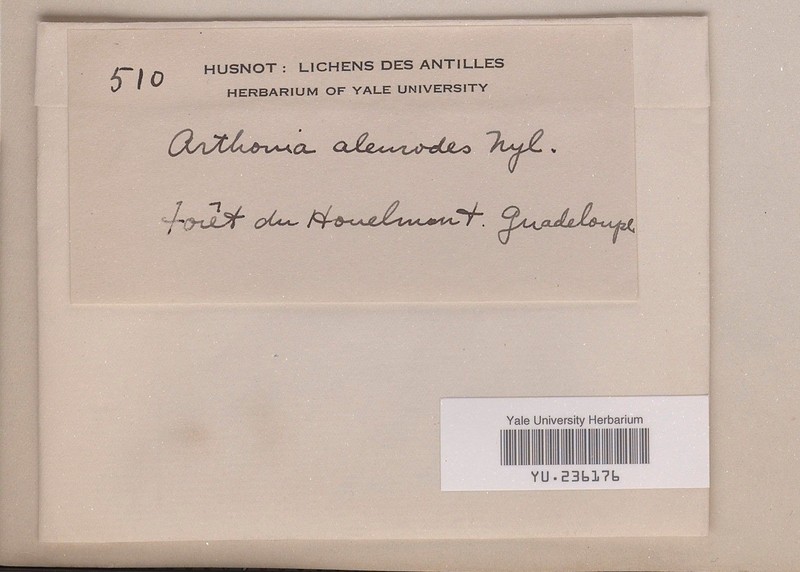 510
HUSNOT: LICHENS DES ANTILLES
HERBARIUM OF YALE UNIVERSITY
Arthonia aleurodes Nyl.
forêt du Houelmont. Guadeloupe
Yale University Herbarium
YU.236176